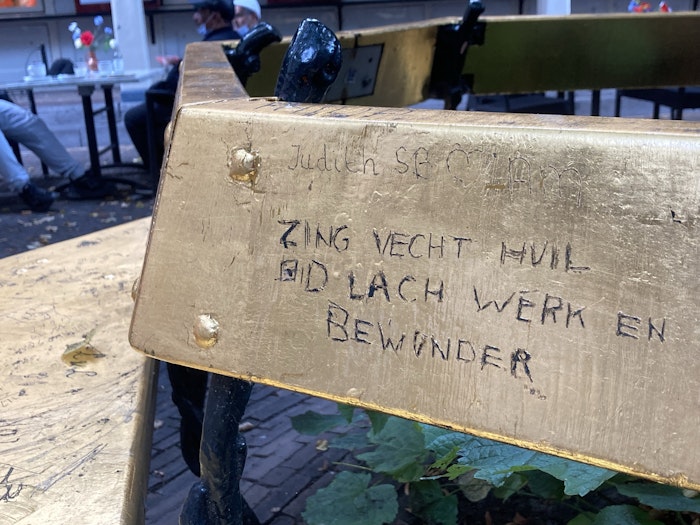 Judith
ZING VECHT HUIL
BID LACH WERK EN
BEWONDER